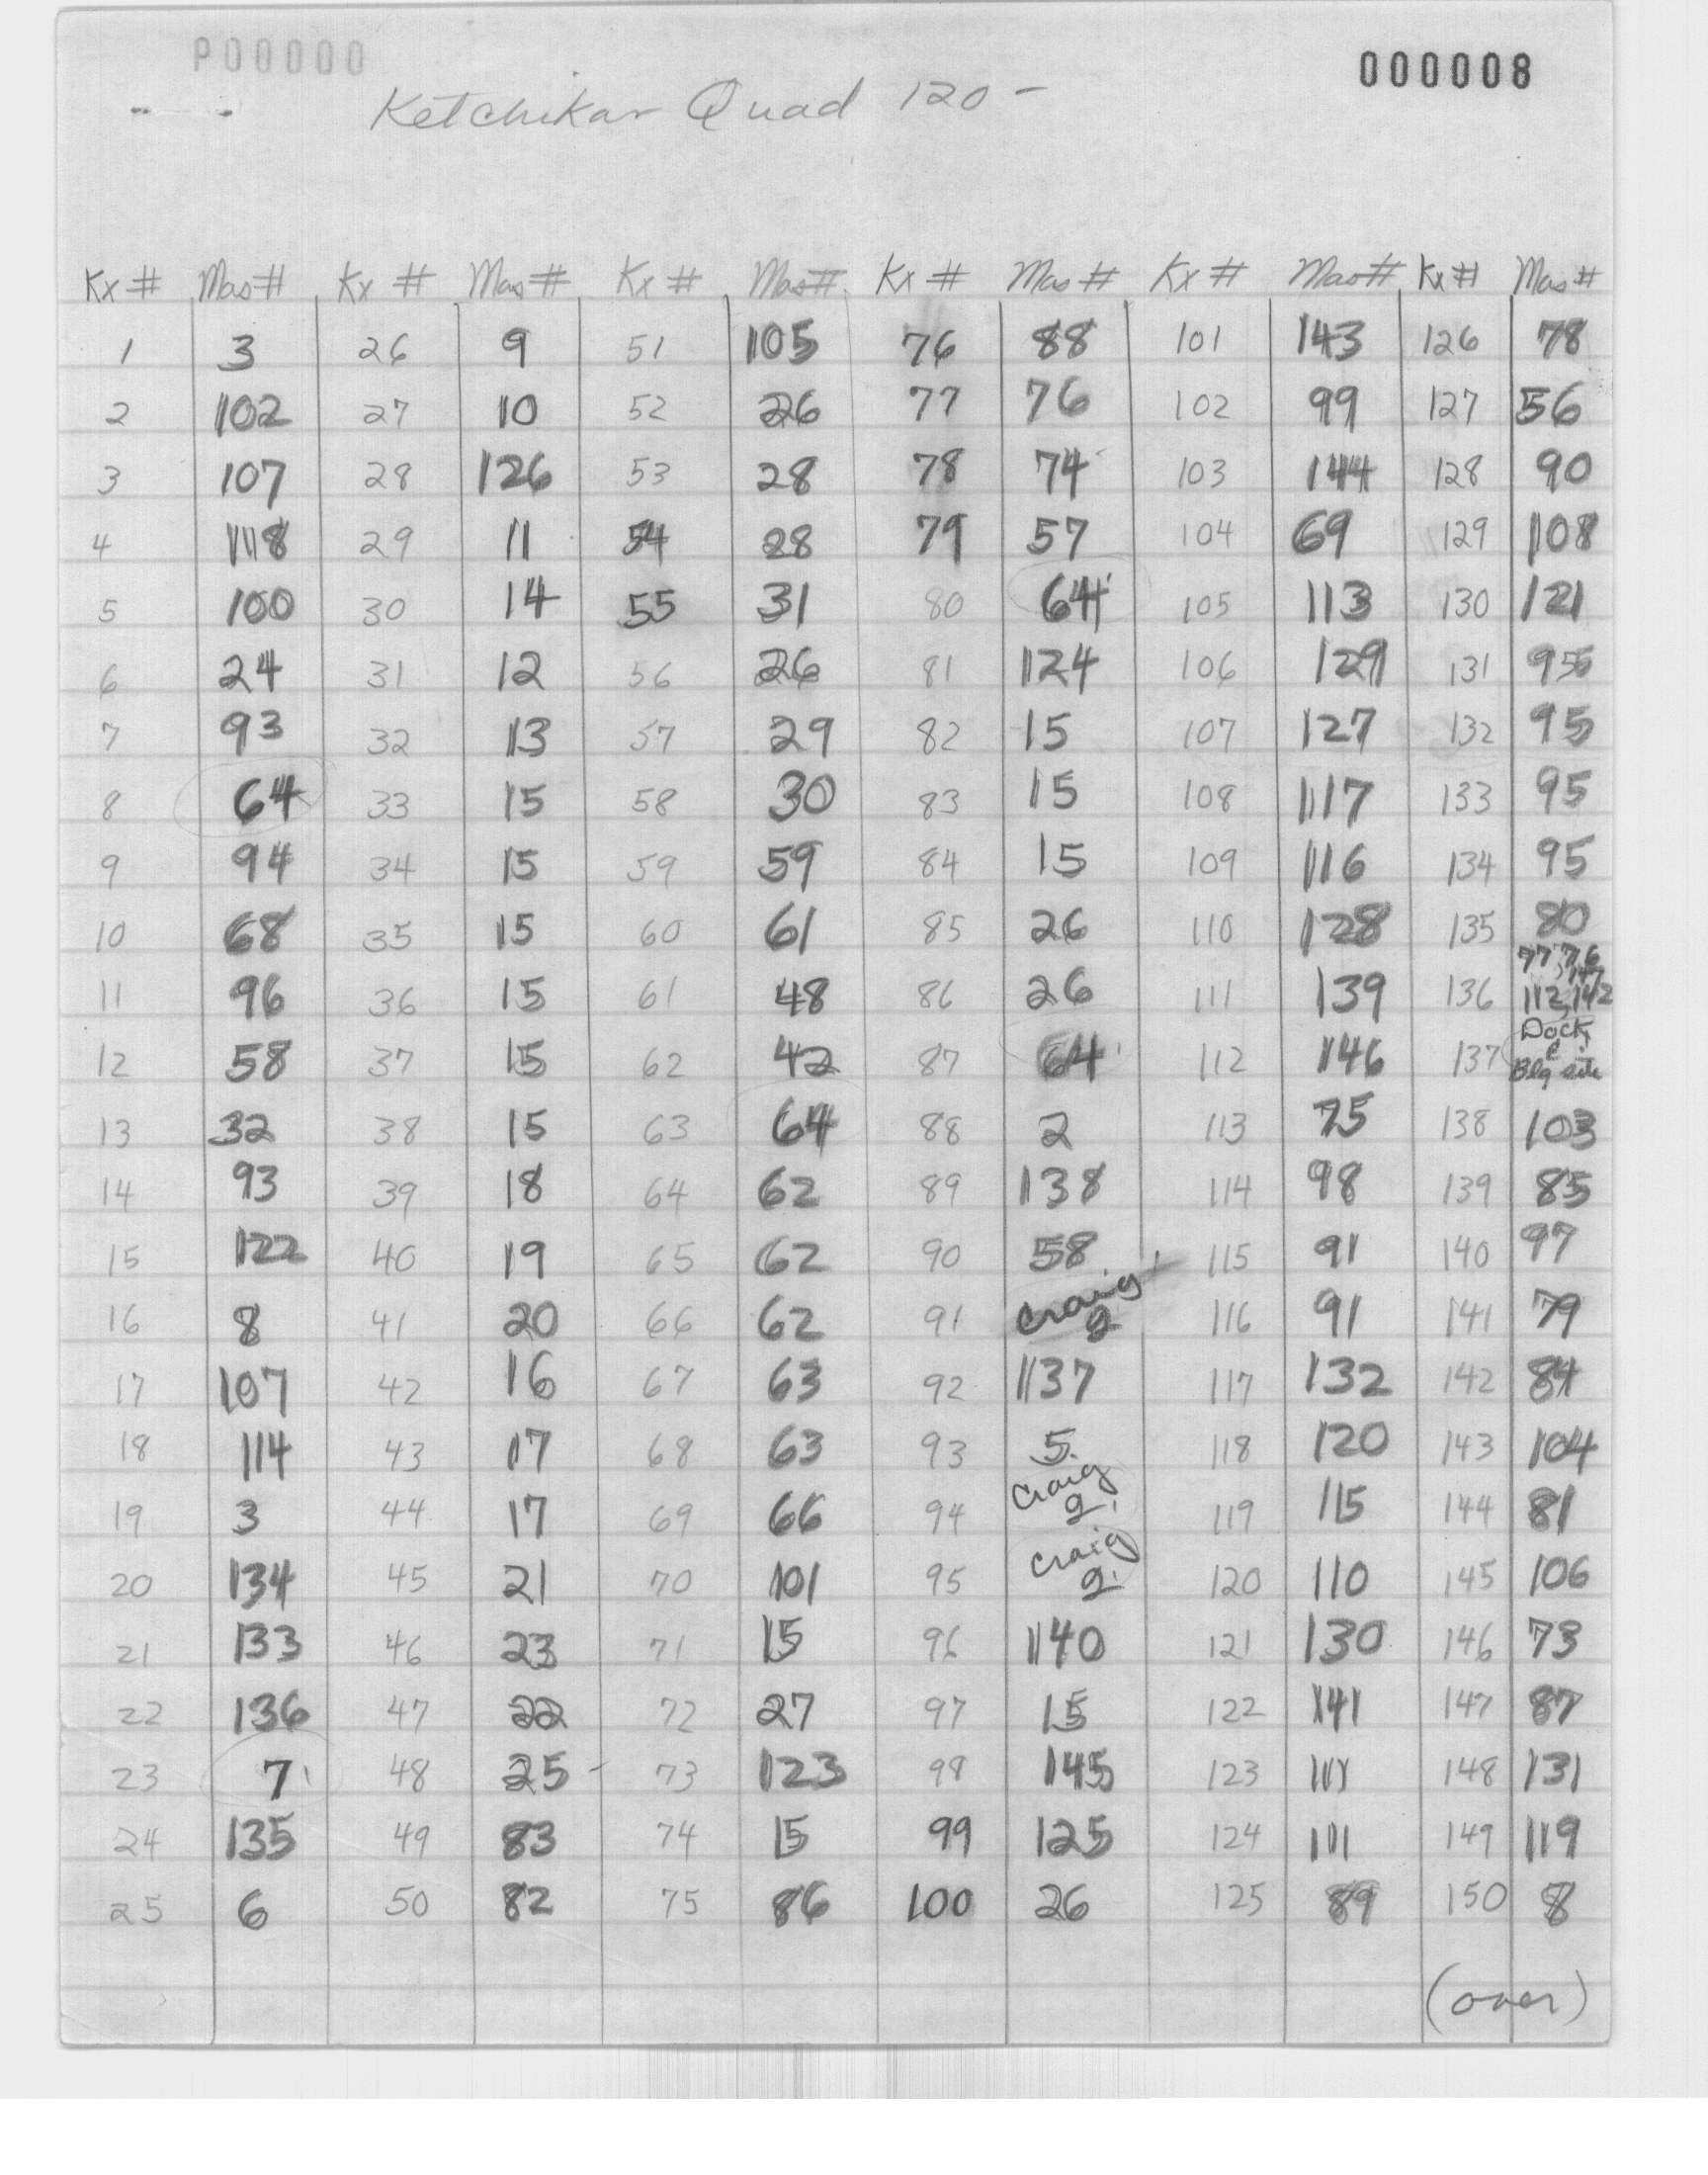 P00000
000008
Ketchikan Quad 120-
Kx # Mas# Kx # Mas# Kx # Mas# Kx # Mas # Kx # Mas# Kx # Mas #
1 3 26 9 51 105 76 88 101 143 126 78
2 102 27 10 52 26 77 76 102 99 127 56
3 107 28 126 53 28 78 74 103 144 128 90
4 118 29 11 54 28 79 57 104 69 129 108
5 100 30 14 55 31 80 64 105 113 130 121
6 24 31 12 56 26 81 124 106 129 131 95
7 93 32 13 57 29 82 15 107 127 132 95
8 64 33 15 58 30 83 15 108 117 133 95
9 94 34 15 59 59 84 15 109 116 134 95
10 68 35 15 60 61 85 26 110 128 135 80
11 96 36 15 61 48 86 26 111 139 136 77, 76, 147 112, 142
12 58 37 15 62 42 87 64 112 146 137 Dock & Blg site
13 32 38 15 63 64 88 2 113 75 138 103
14 93 39 18 64 62 89 138 114 98 139 85
15 122 40 19 65 62 90 58 115 91 140 97
16 8 41 20 66 62 91 Craig 2 116 91 141 79
17 107 42 16 67 63 92 137 117 132 142 84
18 114 43 17 68 63 93 5 118 120 143 104
19 3 44 17 69 66 94 Craig 2 119 115 144 81
20 134 45 21 70 101 95 Craig 2 120 110 145 106
21 133 46 23 71 15 96 140 121 130 146 73
22 136 47 22 72 27 97 15 122 141 147 87
23 7 48 25 73 123 98 145 123 148 131
24 135 49 83 74 15 99 125 124 101 149 119
25 6 50 82 75 86 100 26 125 89 150 8
(over)